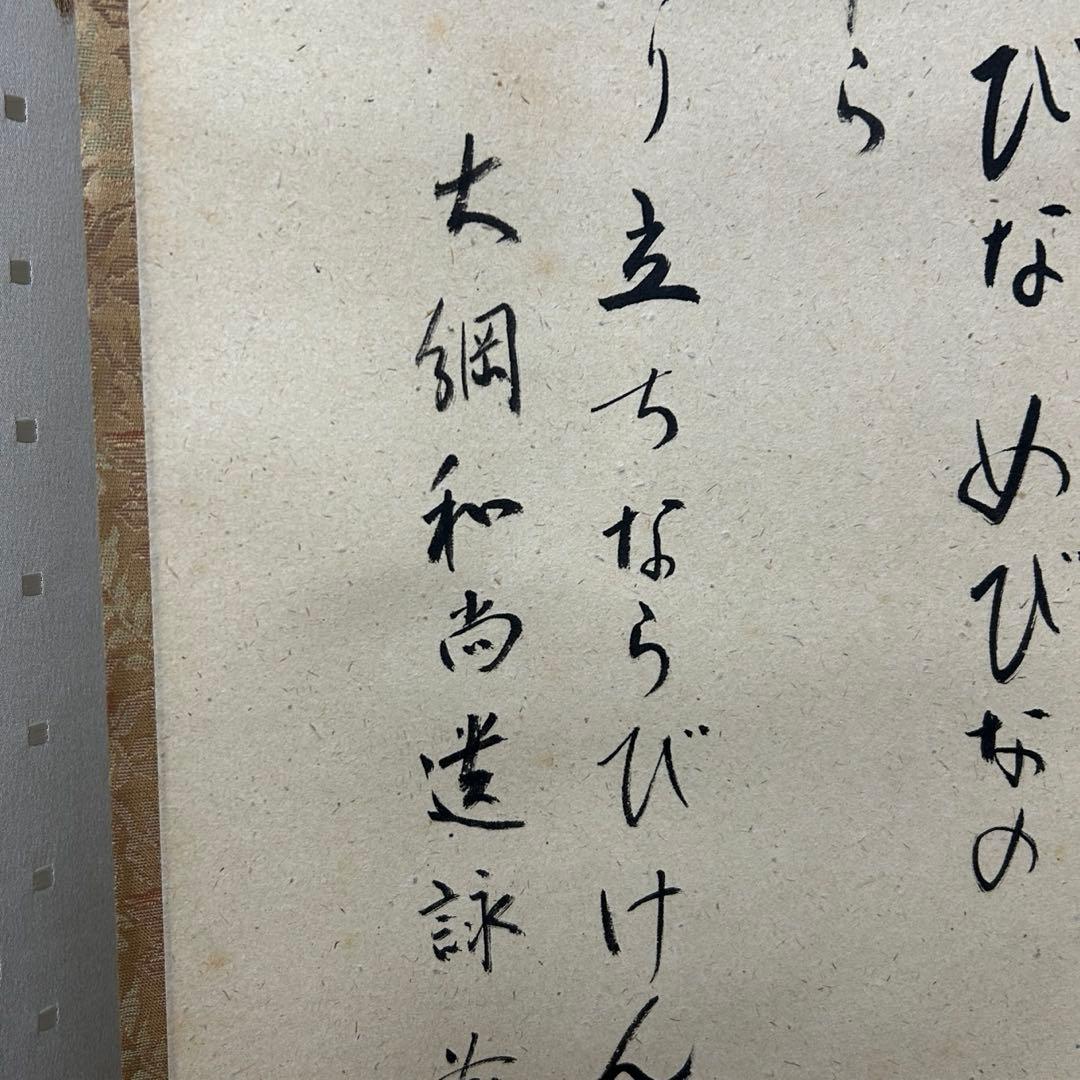 びなめびなの
ら
り立ちならびけん
大綱和尚遺詠